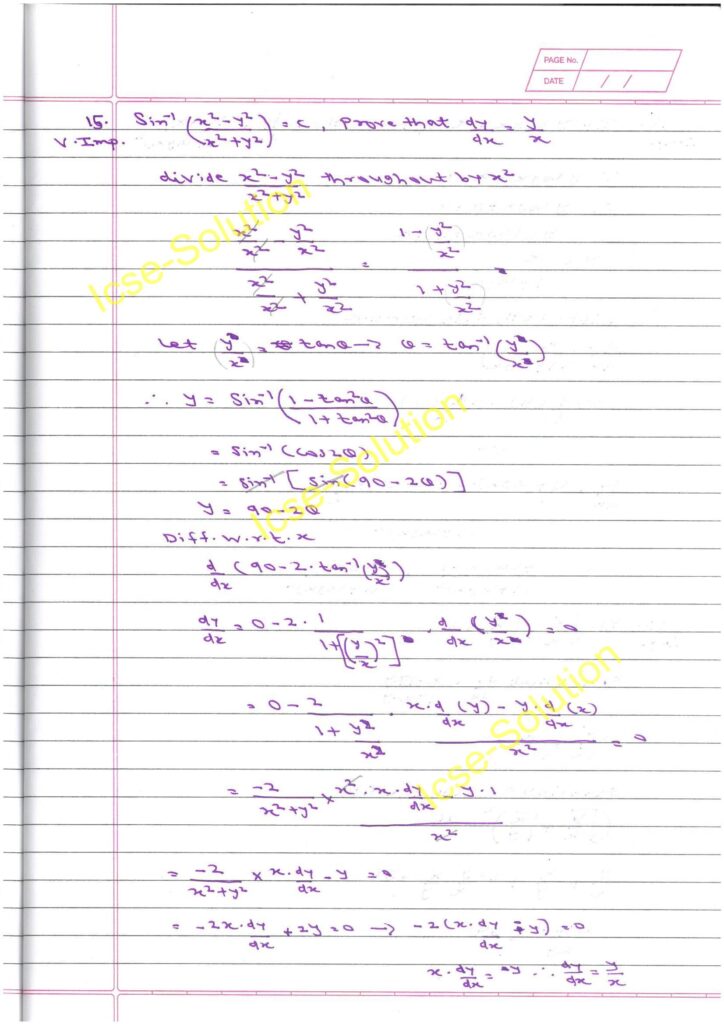 PAGE No.
DATE / /
15. Sin⁻¹ (x²-y² / x²+y²) = c, Prove that dy/dx = y/x
V. Imp.
divide x²-y² / x²+y² throughout by x²
(x²/x² - y²/x²) / (x²/x² + y²/x²) = (1 - y²/x²) / (1 + y²/x²)
Let y/x = tanθ → θ = tan⁻¹ (y/x)
∴ y = Sin⁻¹ (1-tan²θ / 1+tan²θ)
= Sin⁻¹ (cos2θ)
= Sin⁻¹ [Sin(90-2θ)]
y = 90-2θ
Diff. w.r.t. x
d/dx (90-2·tan⁻¹(y/x))
dy/dx = 0-2· 1 / 1+[(y/x)²] · d/dx (y/x) = 0
= 0-2 / (1 + y²/x²) · (x·d/dx (y) - y·d/dx (x)) / x² = 0
= -2 / x²+y² × x² · (x·dy/dx - y·1) / x²
= -2 / x²+y² × x·dy/dx - y = 0
= -2x·dy/dx + 2y = 0 → -2(x·dy/dx - y) = 0
x·dy/dx = y ∴ dy/dx = y/x
Icse-Solution
Icse-Solution
Icse-Solution